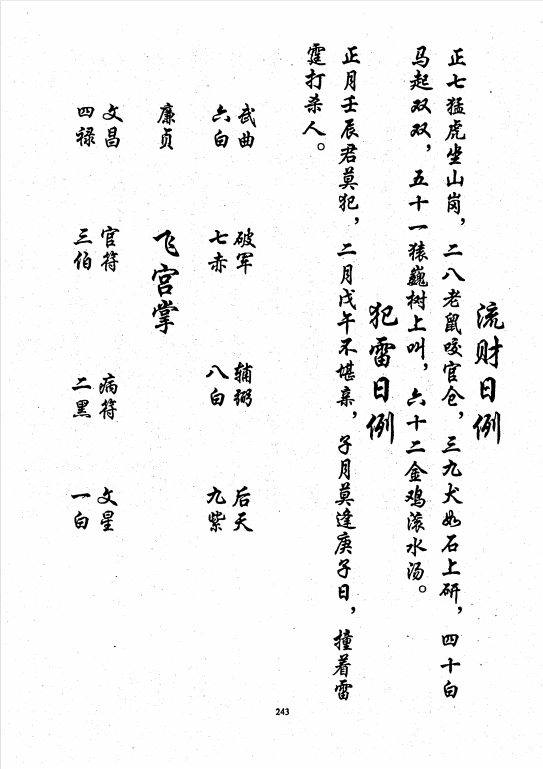 流财日例
正七猛虎坐山岗，二八老鼠咬官仓，三九犬如石上研，四十白
马起双双，五十一猿巍树上叫，六十二金鸡滚水汤。
犯雷日例
正月壬辰君莫犯，二月戊午不堪亲，子月莫逢庚子日，撞着雷
霆打杀人。
武曲
六白
破军
七赤
辅弼
八白
后天
九紫
廉贞
飞宫掌
文昌
四禄
官符
三伯
病符
二黑
文星
一白
243